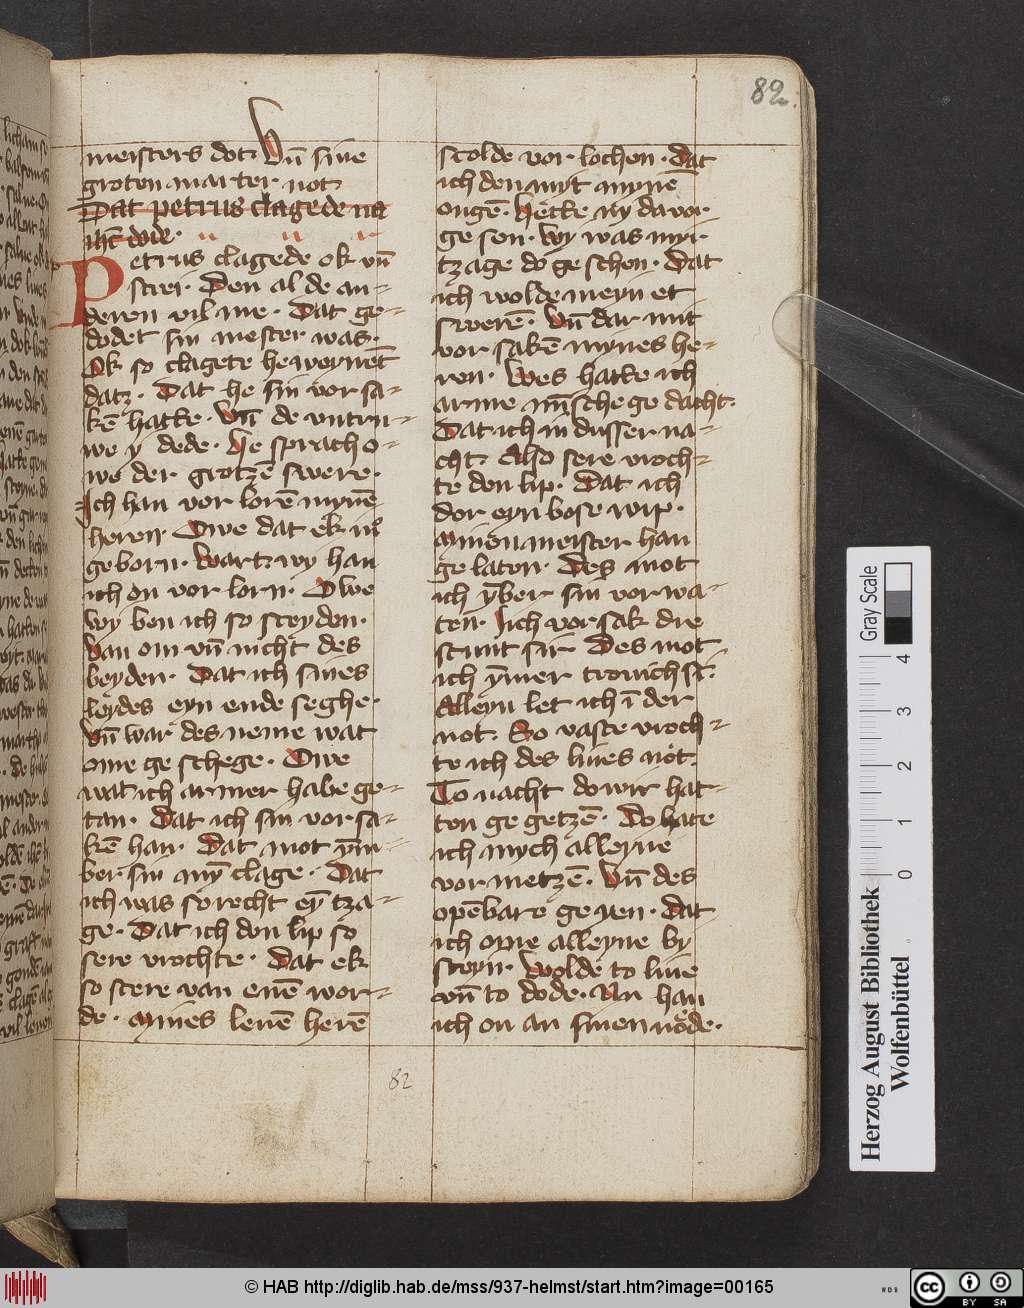 82.
meisters dot. Vn̄ sine
groten marter not
Dat petrus clagede na
ihc̄ dode.
Petrus clagede ok vn̄
screi. Den al de an-
deren vil me. Dat ge-
dodet sin mester was.
Ok so clagete he weynēt
datz. Dat he sin vor sa-
kē hatte. Vn̄ de vntru-
we ȳ dede. He sprach o-
we der grotzē swere.
Ich han vor lorē mynē
heren. Owe dat ek ī
geborn. Wart wy han
ich on vor lorn. Owe
Wy ben ich so sceyden.
Van om vn̄ nicht des
beyden. Dat ich sines
leydes eyn ende seghe.
Vn̄ war des neme wat
ome ge schege. Owe
wat ich armer habe ge-
tan. Dat ich sin vor sa-
kē han. Dat mot ȳm-
ber sin mȳ clage. Dat
ich was so recht eȳ tza-
ge. Dat ich den lip so
sere vrochte. Dat ek
so scere van enē wor-
de. Mines leuē herē
scolde vor lochen. dat
ich den myt mynē
ogē. Hette ny da vor
ge sen. Wy was myr
tzage do ge schen. Dat
ich wolde meyn et
swerē. Vn̄ dar mit
vor sakē mynes he-
ren. Wes hatte ich
arme mīsche ge dacht.
Dat ich in dusser na-
cht. Also sere vroch-
te den lip. Dat ich
dor eyn bose wip.
Minen meister han
ge laten. Des mot
ich ȳber sin vor wa-
ten. Ich vor sak die
stunt sir. Des mot
ich ȳmer trorich sī.
Alleyn let ich ī der
not. So vaste vroch-
te ich des liues not.
To nacht do wir hat-
ten ge getzē. Do hate
ich mych alleyne
vor metzē. Vn̄ des
opēbare ge yen. Dat
ich ome alleyne by
steyn. Wolde to liue
vn̄ to dode. Nu han
ich on an sinen node.
82
Gray Scale
4
3
2
1
0
Herzog August Bibliothek
Wolfenbüttel
© HAB http://diglib.hab.de/mss/937-helmst/start.htm?image=00165
WDB
cc
BY SA